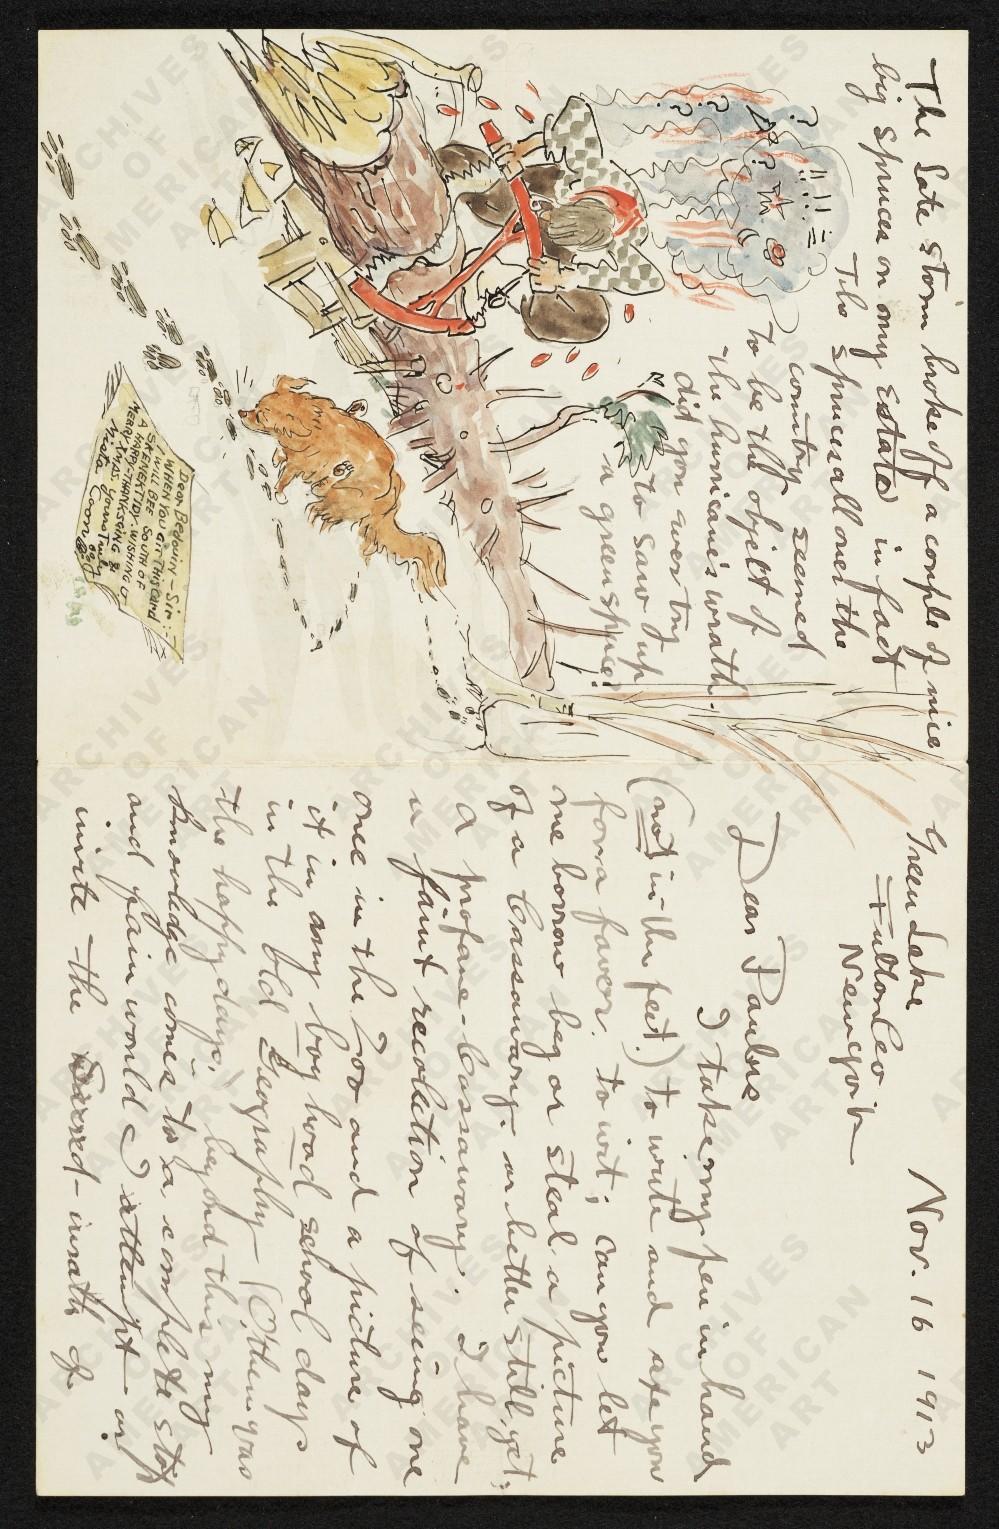 Green Lake
Fulton Co
Newyork
Nov. 16 1913
Dear Paulne
I take my pen in hand
(not in the feet.) to write and ask you
for a favor. to wit; can you let
me borrow beg or steal a picture
of a Cassawary. or better still yet;
a profane-Cassawary; I have
a faint recolection of seeing one
once in the Zoo and a picture of
it in my boy hood school days
in the old Geography (Them was
the happy days.) beyond this my
knowledge comes to a complete stop
and fain would I attempt an
invite the Sacred-wrath of
The late storm broke off a couple of nice
big spruces on my estate in fact
The spruces all over the
country seemed
to be the object of
the hurricane's wrath.
did you ever try
to saw up
a green spruce?
? ? ? !!! =
Dear Bedouin-Sir:
WHEN YOU GIT THIS CARD
I WILL BEE SOUTH OF
SKENENTIDY. WISHING U
A HAPPY-THANKSGING &
MERRY-XMAS. yours Truly
Mista Coon